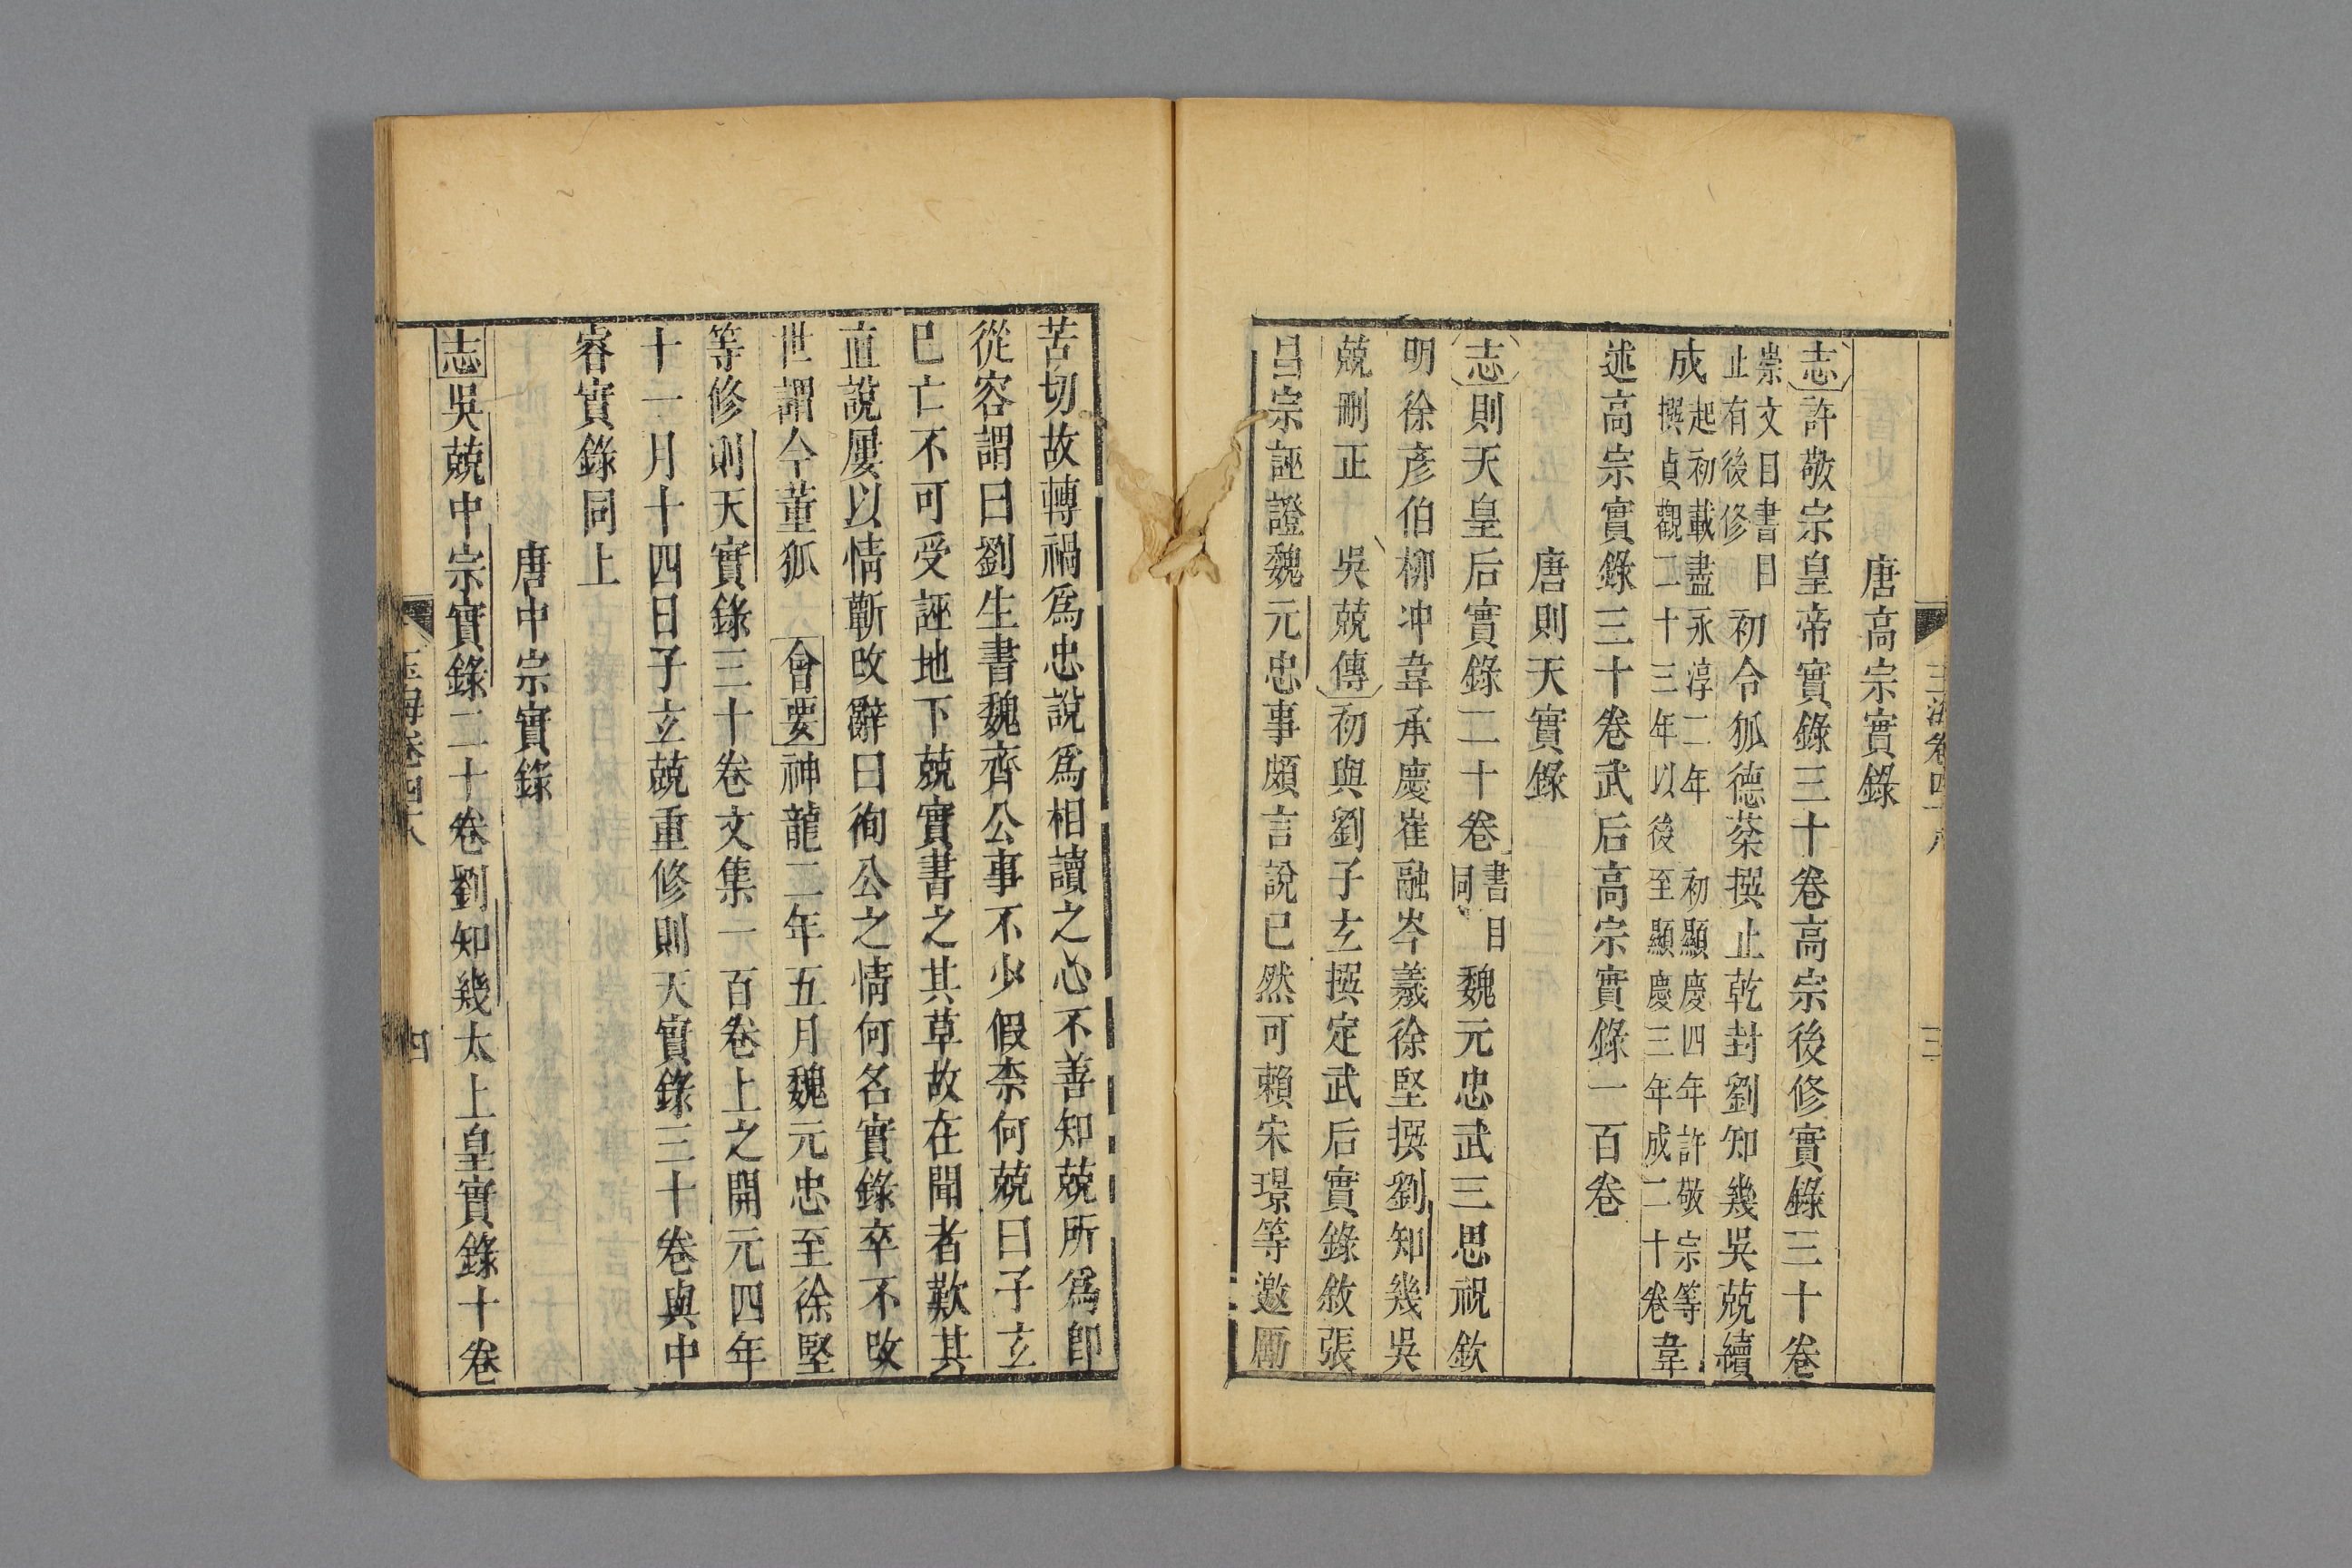 唐高宗實錄
志許敬宗皇帝實錄三十卷高宗後修實錄三十卷
崇文目書目止有後修初令狐德棻撰止乾封劉知幾吳兢續
成起初載盡永淳二年初顯慶四年許敬宗等撰貞觀二十三年以後至顯慶三年成二十卷韋
述高宗實錄三十卷武后高宗實錄一百卷
唐則天實錄
志則天皇后實錄二十卷書目同魏元忠武三思祝欽
明徐彥伯柳冲韋承慶崔融岑羲徐堅撰劉知幾吳
兢刪正吳兢傳初與劉子玄撰定武后實錄敘張
昌宗誣證魏元忠事頗言說已然可賴宋璟等邀厲
苦切故轉禍爲忠說爲相讀之心不善知兢所爲卽
從容謂曰劉生書魏齊公事不少假柰何兢曰子玄
已亡不可受誣地下兢實書之其草故在聞者歎其
直說屢以情蘄改辭曰徇公之情何名實錄卒不改
世謂今董狐會要神龍二年五月魏元忠至徐堅
等修則天實錄三十卷文集一百卷上之開元四年
十一月十四日子玄兢重修則天實錄三十卷與中
睿實錄同上
唐中宗實錄
志吳兢中宗實錄二十卷劉知幾太上皇實錄十卷
玉海卷四八
四